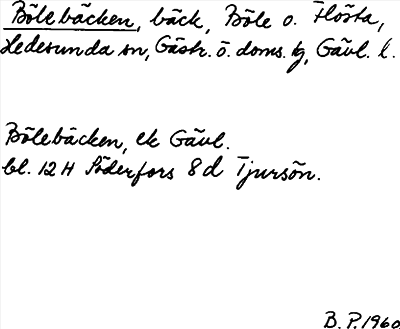 Bölebäcken, bäck, Böle o. Flösta,
Hedesunda sn, Gästr. ö. doms. tg, Gävl. l.
Bölebäcken, ek Gävl.
bl. 12 H Söderfors 8 d Tjursön.
B. P. 1960.